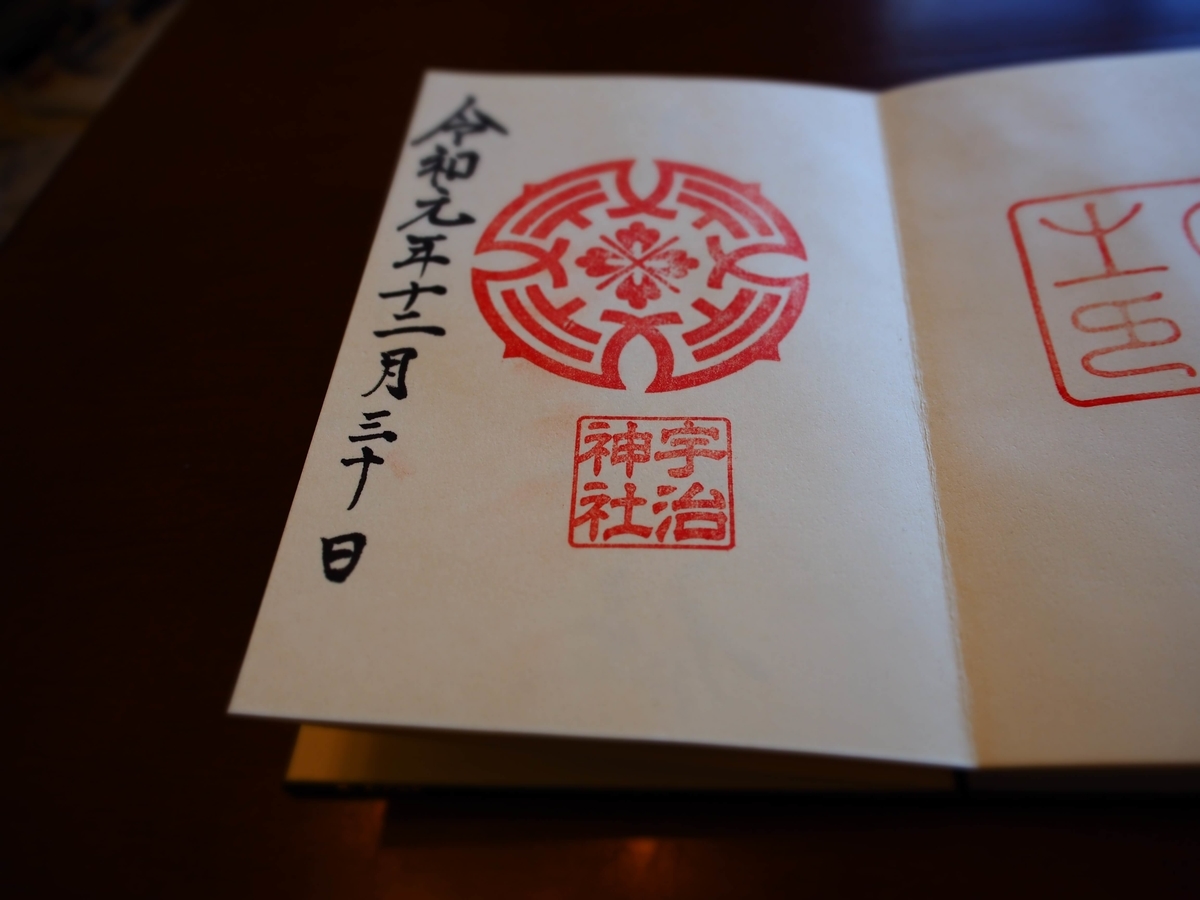 令和元年十二月三十日
宇治
神社